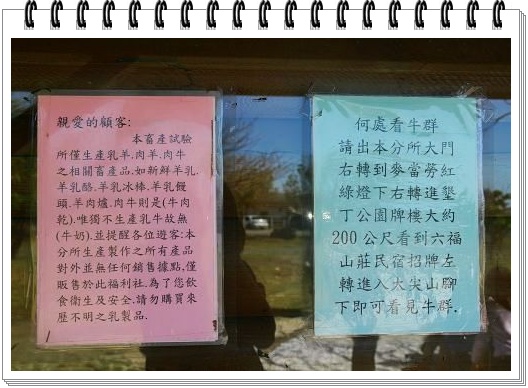 親愛的顧客:
本畜產試驗
所僅生產乳羊.肉羊.肉牛
之相關畜產品.如新鮮羊乳.
羊乳酪.羊乳冰棒.羊乳饅
頭.羊肉爐.肉牛則是(牛肉
乾).唯獨不生產乳牛故無
(牛奶).並提醒各位遊客:本
分所生產製作之所有產品
對外並無任何銷售據點,僅
販售於此福利社.為了您飲
食衛生及安全.請勿購買來
歷不明之乳製品.
何處看牛群
請出本分所大門
右轉到麥當勞紅
綠燈下右轉進墾
丁公園牌樓大約
200公尺看到六福
山莊民宿招牌左
轉進入大尖山腳
下即可看見牛群.